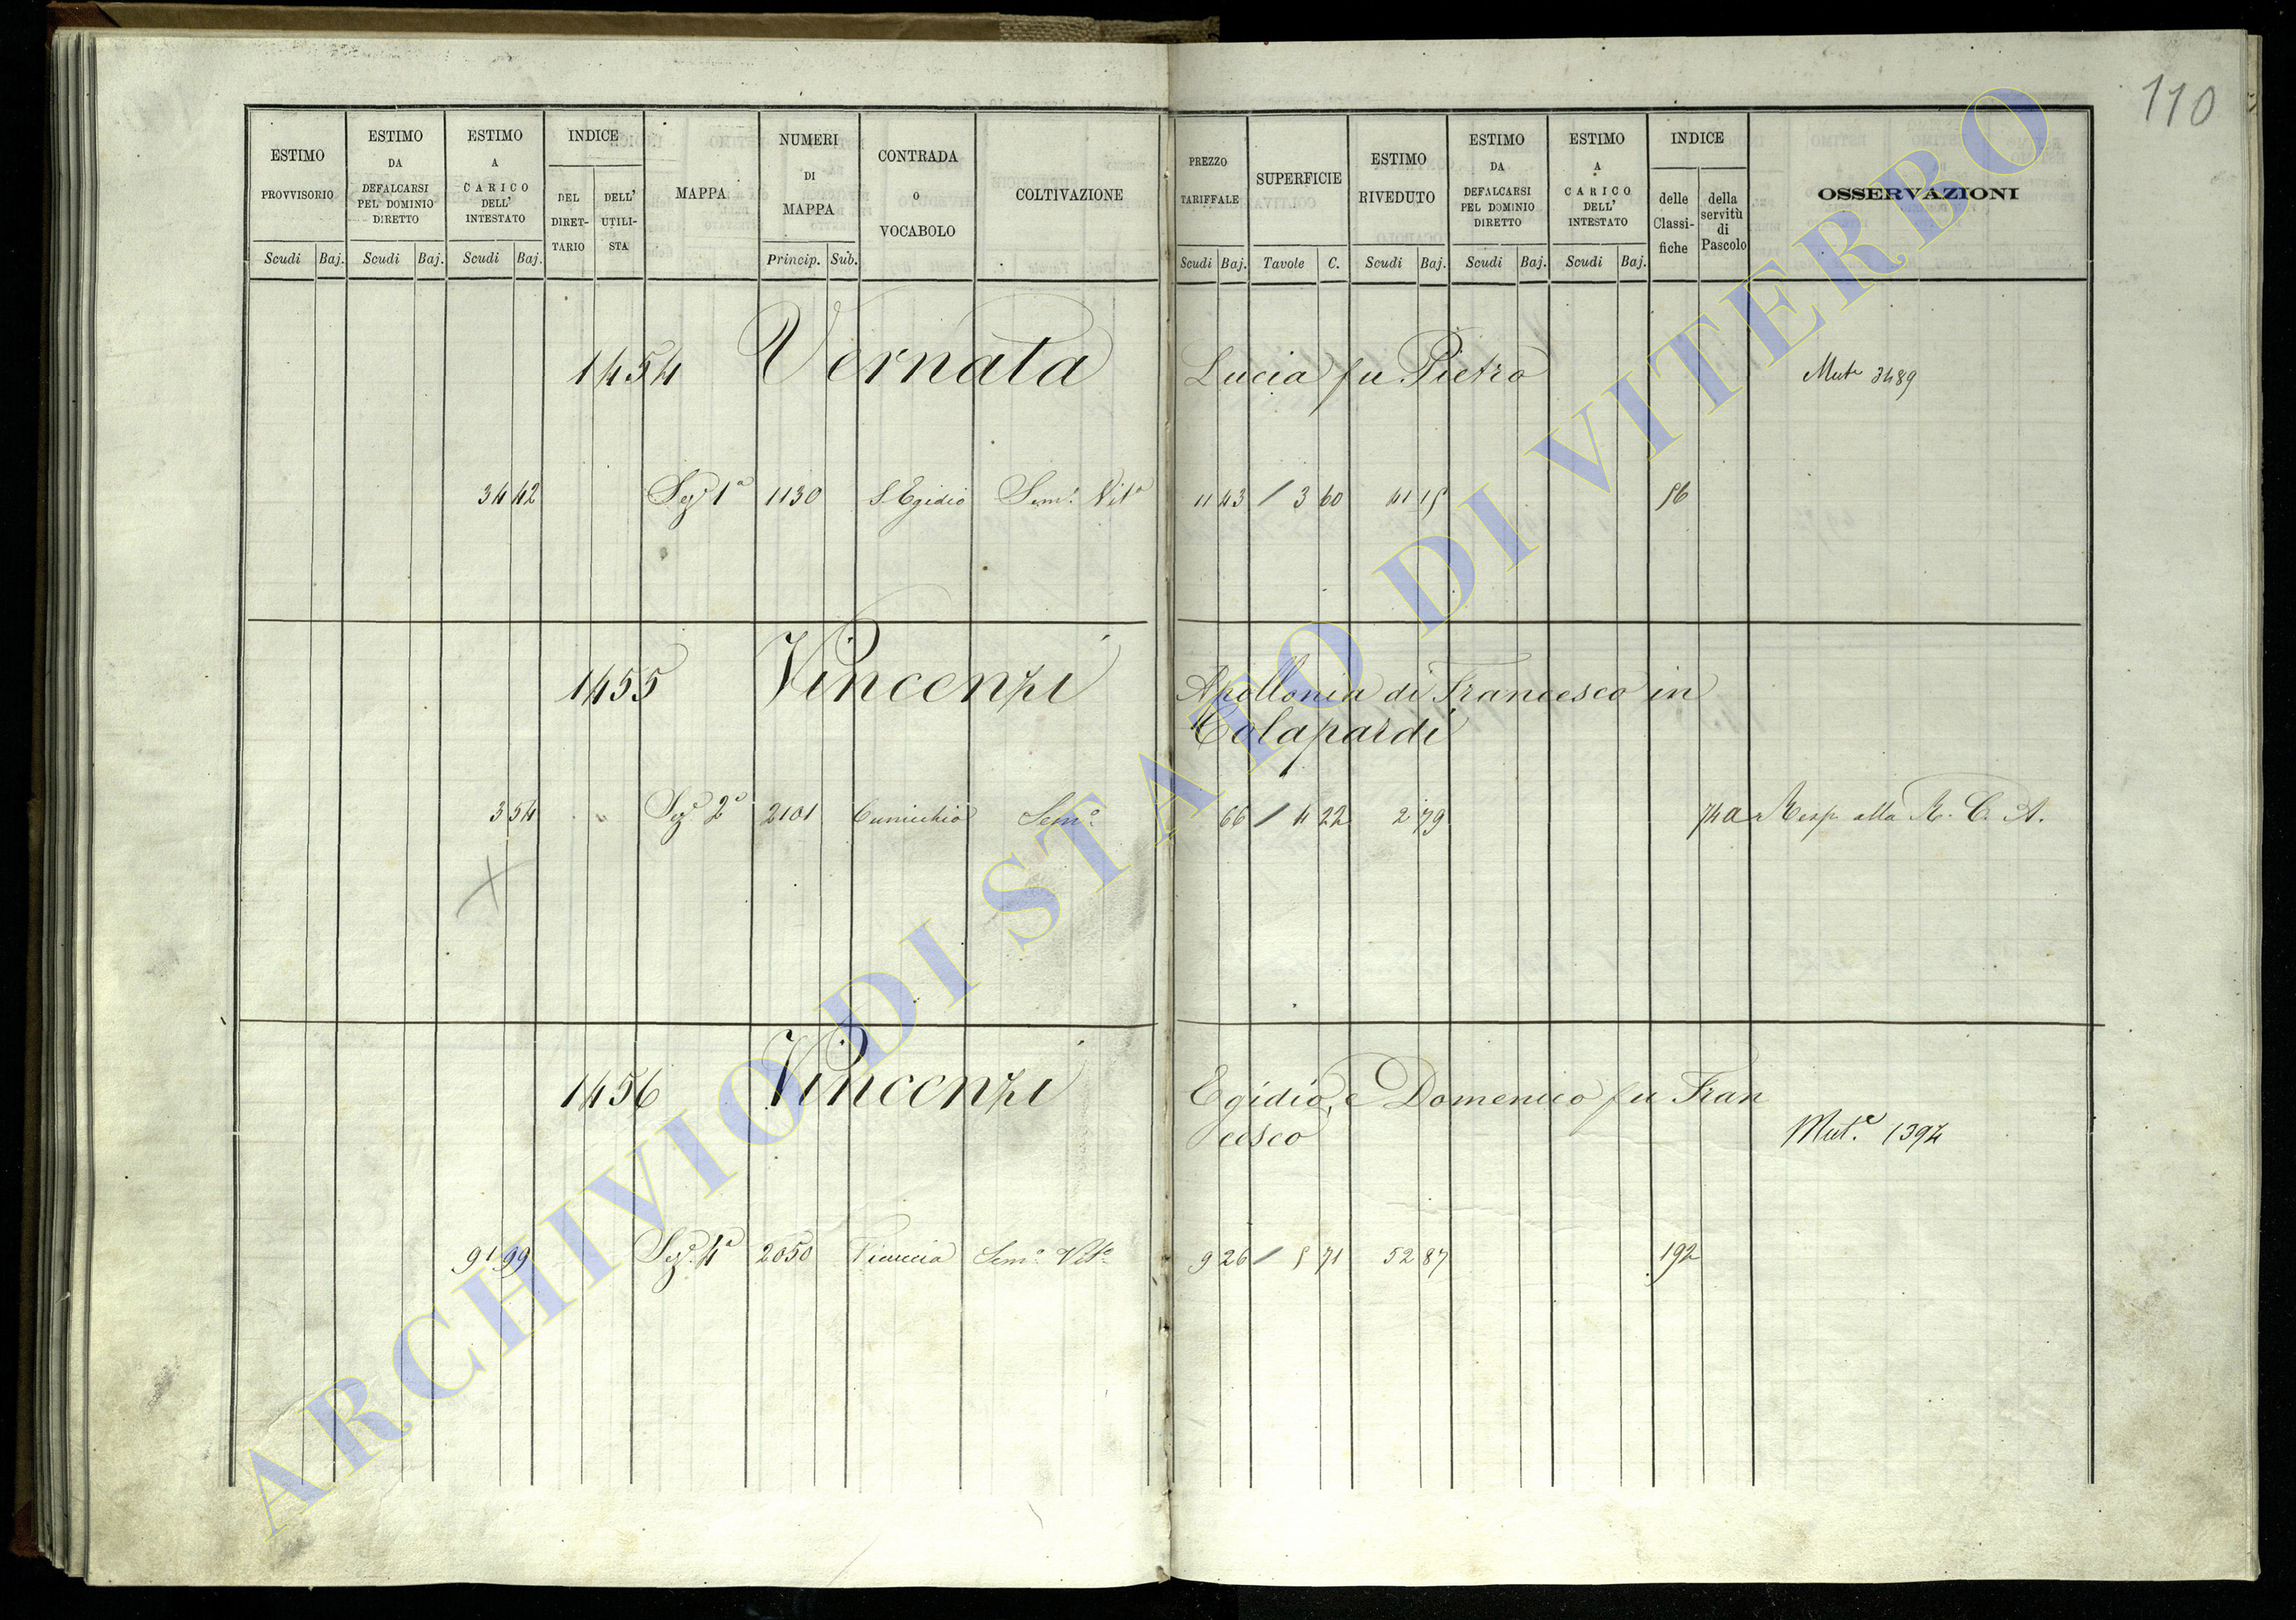 110
ESTIMO PROVVISORIO
ESTIMO DA DEFALCARSI PEL DOMINIO DIRETTO
ESTIMO A CARICO DELL' INTESTATO
INDICE
DEL DIRET-TARIO
DELL' UTILI-STA
MAPPA
NUMERI DI MAPPA
CONTRADA o VOCABOLO
COLTIVAZIONE
PREZZO TARIFFALE
SUPERFICIE
ESTIMO RIVEDUTO
ESTIMO DA DEFALCARSI PEL DOMINIO DIRETTO
ESTIMO A CARICO DELL' INTESTATO
INDICE
delle Classi-fiche
della servitù di Pascolo
OSSERVAZIONI
Scudi Baj. Scudi Baj. Scudi Baj. Princip. Sub. Scudi Baj. Tavole C. Scudi Baj. Scudi Baj. Scudi Baj.
1454 Vernata Lucia fu Pietro Mut.e 3489
34 42 Sez.e 1a 1130 S. Egidio Sem.o Vit.o 11 43 / 3 60 41 15 56
1455 Vincenzi Apollonia di Francesco in
Colapardi
3 54 " Sez.e 2a 2101 Cunicchio Sem.o 66 / 4 22 2 79 74 a Resp. alla R. C. A.
1456 Vincenzi Egidio, e Domenico fu Fran
cesco Mut.e 1394
91 99 Sez.e 4a 2050 Ficuccia Sem.o Vit.o 9 26 / 5 71 52 87 192
ARCHIVIO DI STATO DI VITERBO